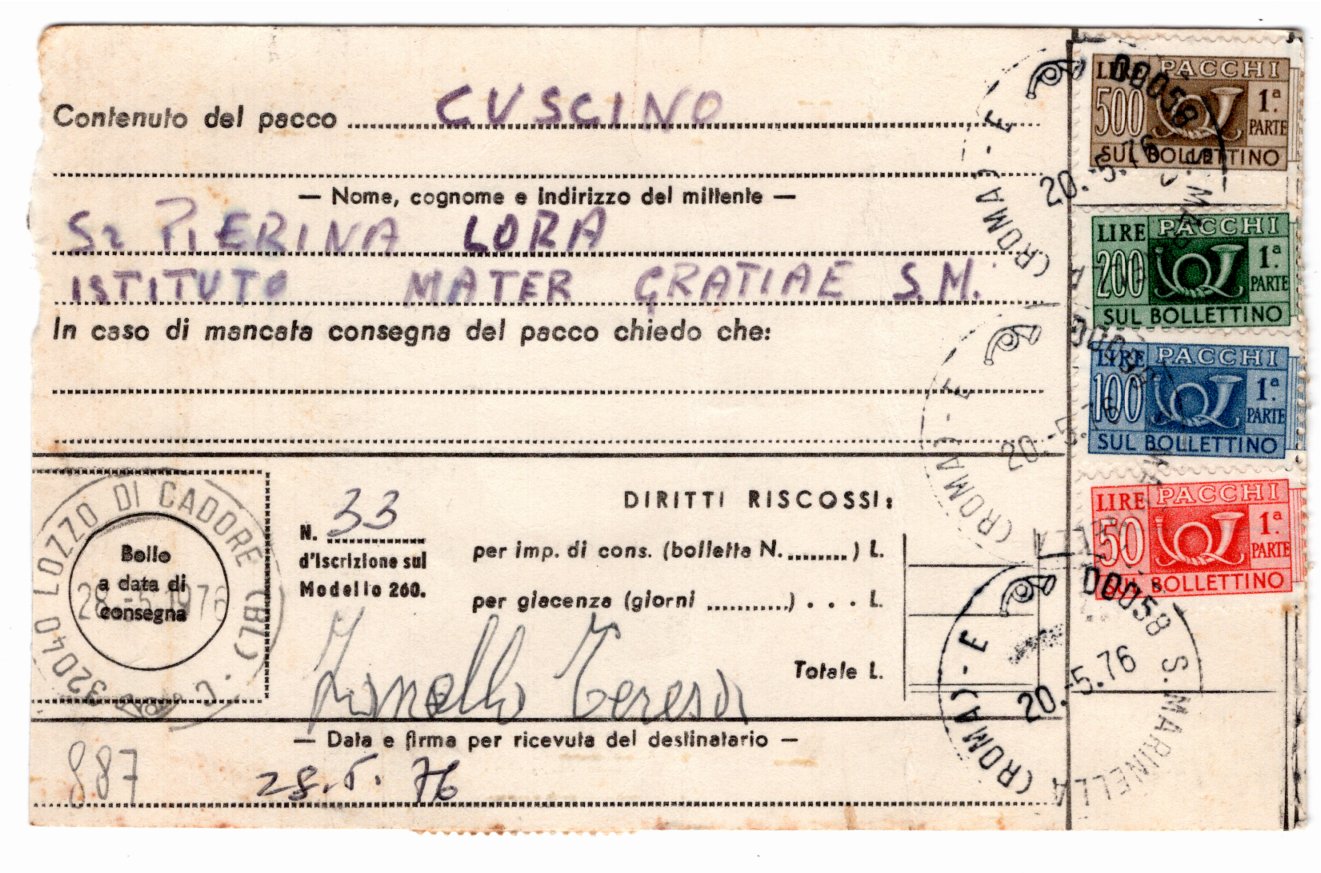 Contenuto del pacco CUSCINO
— Nome, cognome e indirizzo del mittente —
Sr PIERINA LORA
ISTITUTO MATER GRATIAE S.M.
In caso di mancata consegna del pacco chiedo che:
LIRE PACCHI
500 1.ª
PARTE
SUL BOLLETTINO
LIRE PACCHI
200 1.ª
PARTE
SUL BOLLETTINO
LIRE PACCHI
100 1.ª
PARTE
SUL BOLLETTINO
LIRE PACCHI
50 1.ª
PARTE
SUL BOLLETTINO
00058 S. MARINELLA (ROMA) - E
20.-5.76
00058 S. MARINELLA (ROMA) - E
20.-5.76
00058 S. MARINELLA (ROMA) - E
20.-5.76
32040 LOZZO DI CADORE (BL)
28.-5.1976
Bollo
a data di
consegna
N. 33
d'iscrizione sul
Modello 260.
DIRITTI RISCOSSI:
per imp. di cons. (bolletta N. ........) L.
per giacenza (giorni ...........) . . . L.
Totale L.
Teresa
— Data e firma per ricevuta del destinatario —
887
28.5.76